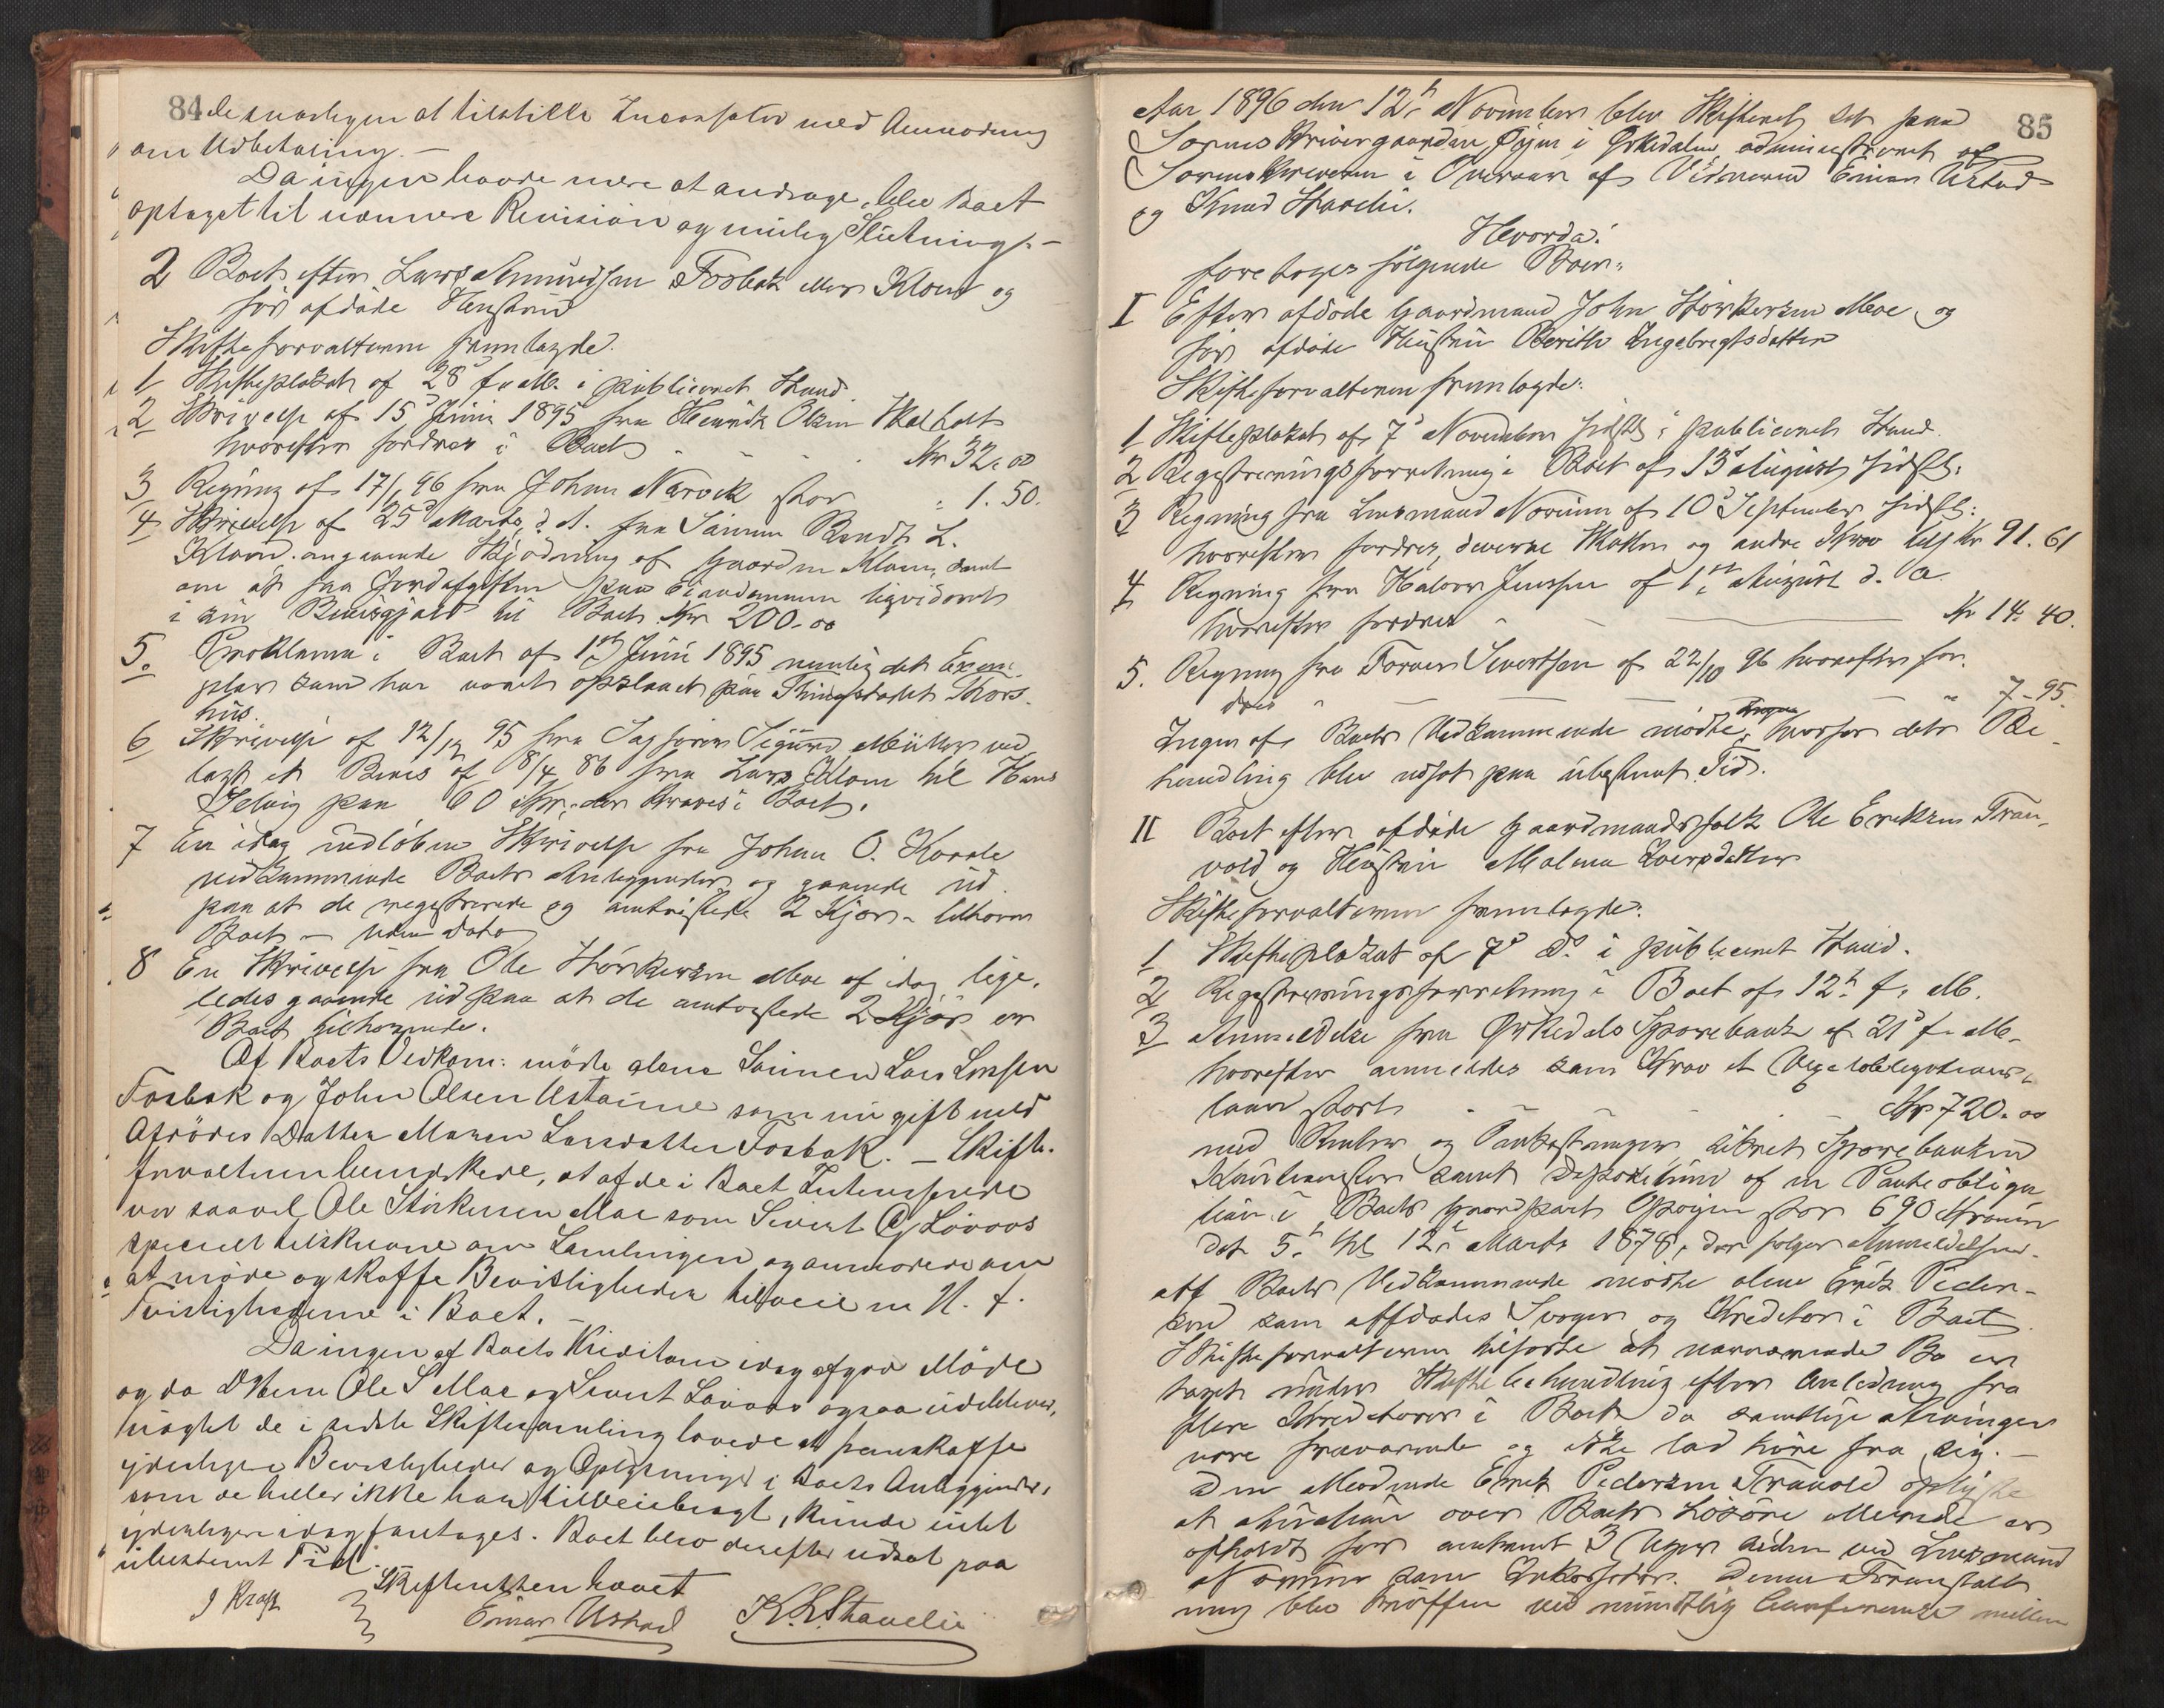 84 de snarligen at tilstille Incassator med Anmodning
om Udbetaling. —
Da ingen havde mere at andrage, blev Boet
optaget til nærmere Revision og mulig Slutning. —
2 Boet efter Lars Amundsen Fosbak eller Klom og
før afdøde Hustru
Skifteforvalteren fremlagde.
1 Skifteplakat af 28d f. M. i publiceret Stand
2 Skrivelse af 15d Juni 1895 fra Henrik Olsen Skolholt
hvorefter fordres i Boet - - - Kr 32.00
3 Regning af 17/1 96 fra Johan Narvik stor " 1.50.
4 Skrivelse af 25d Marts d. A. fra Sønnen Bendt L.
Klom angaaende Skjødning af Gaarden Klom, samt
om at faa Jordafgiften paa Eiendommen ligvideret
i sin Bevisgjæld til Boet Kr 200.00
5. Proklama i Boet af 1ste Juni 1895 nemlig det Exem-
plar som har været opslaaet paa Thingstedet Skors-
hus.
6 Skrivelse af 12/12 95 fra Sagfører Sigurd Müller ved-
lagt et Bevis af 8/4 86 fra Lars Klom til Hans
Solvig paa 60 Kr, der kræves i Boet.
7 En idag indløben Skrivelse fra Johan O. Kaarle
vedkommende Boets Anliggender og gaaende ud
paa at de registrerede og omtvistede 2 Kjør tilhører
Boet — uden Dato
8 En Skrivelse fra Ole Størkersen Moe af idag lige-
ledes gaaende ud paa at de omtvistede 2 Kjør er
Boet tilhørende.
Af Boets Vedkom: mødte alene Sønnen Lars Larsen
Fosbak og John Olsen Ustainne som nu gift med
Afdødes Datter Maren Larsdatter Fosbak. — Skifte-
forvalteren bemærkede, at af de i Boet Interesserede
var saavel Ole Størkersen Moe som Sivert O. Løvaas
specielt tilskrevne om Samlingen og anmodede om
at møde og skaffe Bevisligheder tilveie m. H. t.
Tvistighederne i Boet. —
Da ingen af Boets Kreditorer idag afgav Møde
og da DHrrer Ole S. Moe og Sivert Løvaas ogsaa udebleve,
uagtet de i sidste Skiftesamling lovede at fremskaffe
yderligere Bevisligheder og Oplysninger i Boets Anliggender,
som de heller ikke have tilveiebragt, kunde intet
yderligere idag foretages. Boet blev derefter udsat paa
ubestemt Tid.
Skifteretten hævet
I Kraft Einar Ustad K. K. Stavelie
85
Aar 1896 den 12te November blev Skifteret sat paa
Sorenskrivergaarden Øyen i Ørkedalen administreret af
Sorenskriveren i Overvær af Vidnerne Einar Ustad
og Knud Stavelie.
Hvorda:
foretoges følgende Boer:
I Efter afdøde Gaardmand John Størkersen Moe og
før afdøde Hustru Berith Ingebregtsdatter
Skifteforvalteren fremlagde:
1 Skifteplakat af 7d November sidstl. i publiceret Stand
2 Registreringsforretning i Boet af 13d August sidstl.
3 Regning fra Lensmand Norum af 10d September sidstl.
hvorefter fordres diverse Skatter og andre Krav tils Kr 91.61
4 Regning fra Halvor Jenssen af 1ste August d. A.
hvorefter fordres — Kr 14.40.
5. Regning fra Torver Sivertsen af 22/10 96 hvorefter for-
dres " — " 7.95.
Ingen af Boets Vedkommende mødte, hvorfor dets Be-
handling blev udsat paa ubestemt Tid.
II Boet efter afdøde Gaardmandsfolk Ole Eriksen Tran-
vold og Hustru Malena Iversdatter
Skifteforvalteren fremlagde:
1 Skifteplakat af 7d ds. i publiceret Stand.
2 Registreringsforretning i Boet af 12te f. M.
3 Anmeldelse fra Ørkedals Sparebank af 21d f. M.
hvorefter anmeldes som Krav et Vexelobligations-
laan stort - - - Kr 720.00
med Renter og Omkostninger sikret Sparebanken
Kautionister samt Deposition af en Panteobliga-
tion i Boets Gaardpart Opøien stor 690 Kroner
dat 5te thl 12te Marts 1878, der følger Anmeldelsen.
Aff Boets Vedkommende mødte alene Erik Peder-
sen som affdødes Svoger og Kreditor i Boet
Skifteforvalteren tilførte at nærværende Bo er
taget under Skiftebehandling efter Anledning fra
flere Kreditorer i Boet da samtlige Arvinger
vare fraværende og ikke lod høre fra sig. —
Den Mødende Erik Pedersen Tranvold oplyste
at Auktion over Boets Løsøre allerede er
afholdt for omtrent 3 Uger siden ved Lensmand
Norum som Inkassator. Denne Foranstalt-
ning blev truffen ved mundtlig Conference mellem